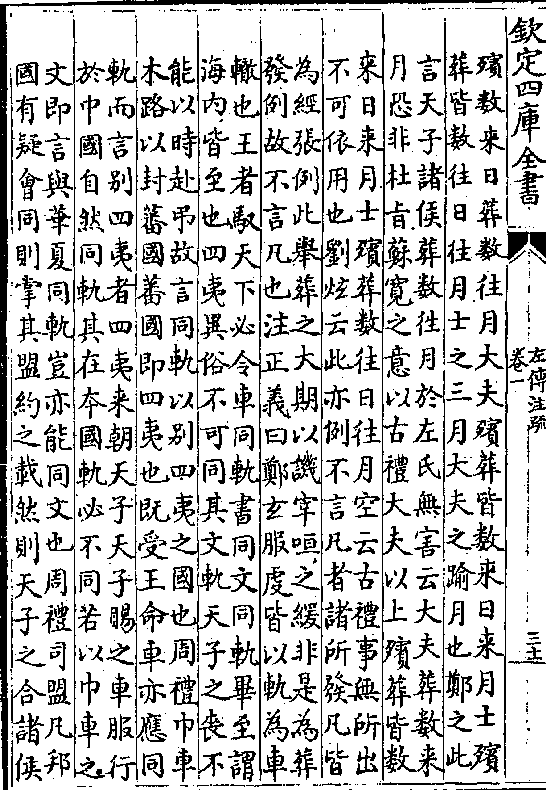 欽定四庫全書
左傳注疏
卷一
三十一
殯數來日葬數往月大夫殯葬皆數來日來月士殯
葬皆數往日往月士之三月大夫之踰月也鄭之此
言天子諸侯葬數往月於左氏無害云大夫葬數來
月恐非杜旨蘇寬之意以古禮大夫以上殯葬皆數
來日來月士殯葬數往日往月空云古禮事無所出
不可依用也劉炫云此亦例不言凡者諸所發凡皆
為經張例此舉葬之大期以譏宰咺之緩非是為葬
發例故不言凡也注正義曰鄭玄服虔皆以軌為車
轍也王者馭天下必令車同軌書同文同軌畢至謂
海內皆至也四夷異俗不可同其文軌天子之喪不
能以時赴弔故言同軌以別四夷之國也周禮巾車
木路以封蕃國蕃國即四夷也既受王命車亦應同
軌而言別四夷者四夷來朝天子天子賜之車服行
於中國自然同軌其在本國軌必不同若以巾車之
文即言與華夏同軌豈亦能同文也周禮司盟凡邦
國有疑會同則掌其盟約之載然則天子之合諸侯